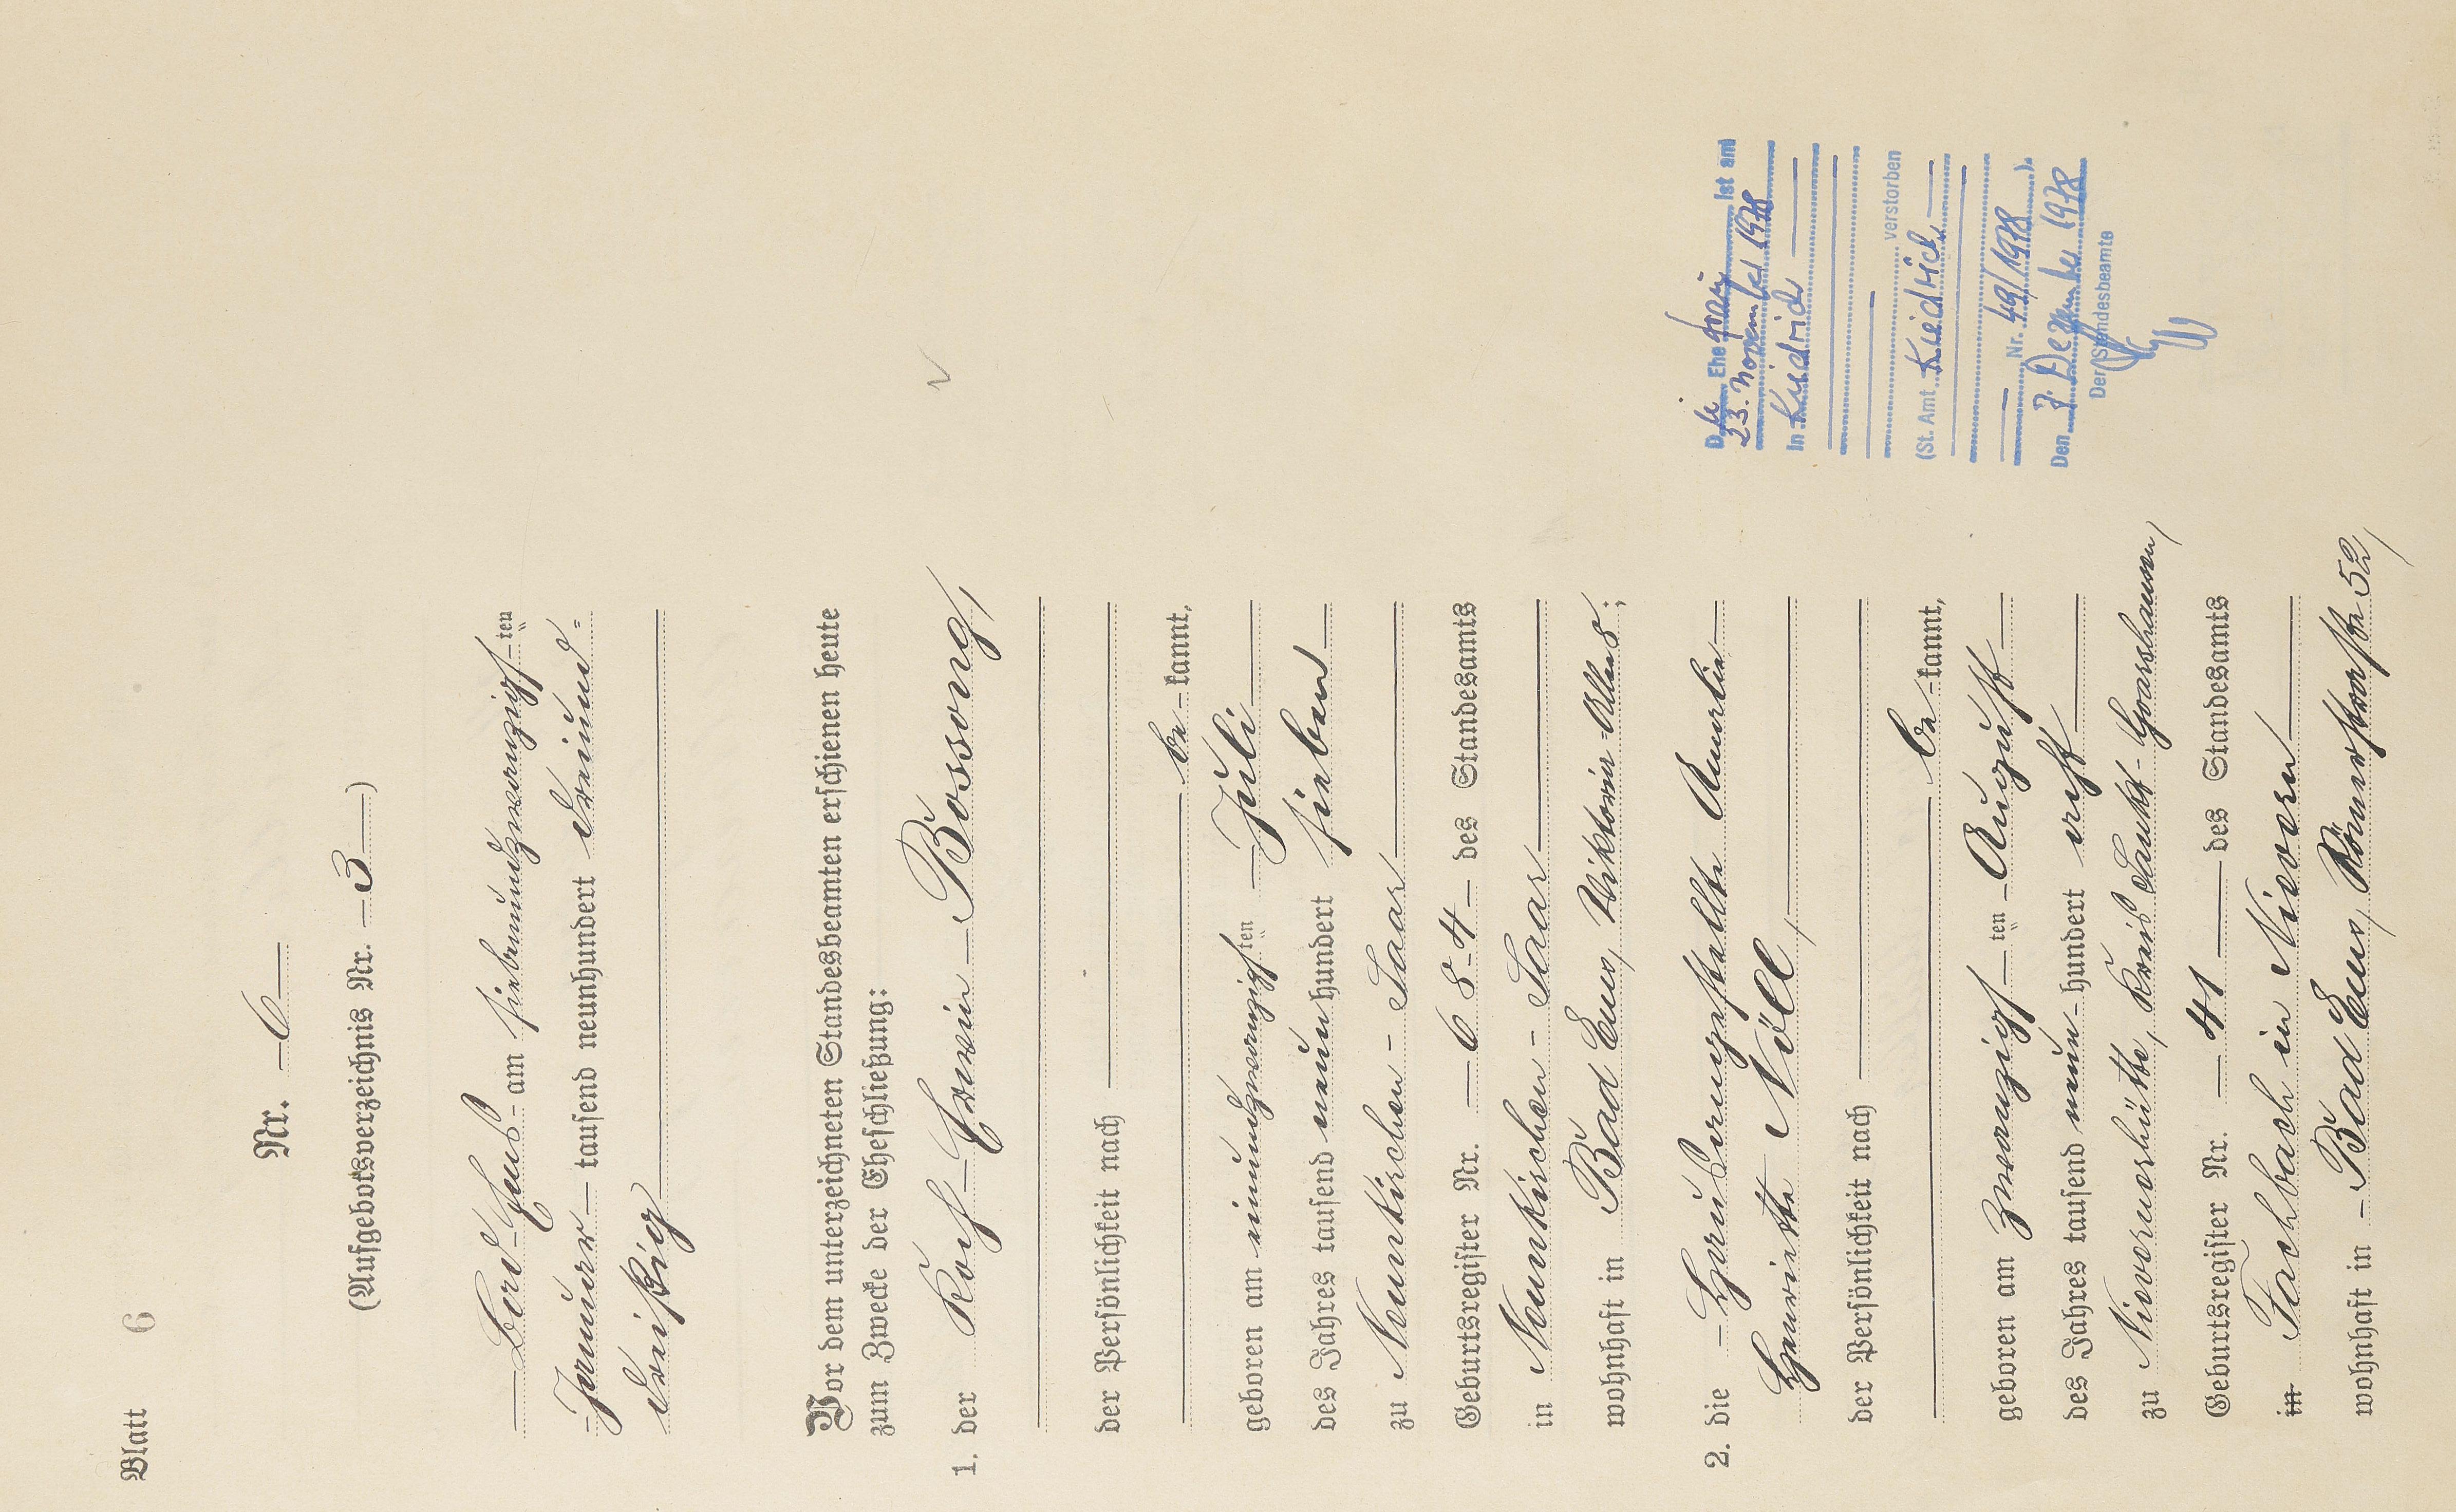 Blatt 6
Nr. 6
(Aufgebotsverzeichnis Nr. 3)
Bad Ems am siebenundzwanzigsten
Januar tausend neunhundert dreiund-
dreißig
Vor dem unterzeichneten Standesbeamten erschienen heute
zum Zwecke der Eheschließung:
1. der Koch Erwin Bossong,
der Persönlichkeit nach
be-kannt,
geboren am einundzwanzigsten Juli
des Jahres tausend neunhundert sieben
zu Neunkirchen - Saar
Geburtsregister Nr. 684 des Standesamts
in Neunkirchen - Saar
wohnhaft in Bad Ems, Viktoria-Allee 8;
2. die Hausangestellte Amalie
Henriette Nöll,
der Persönlichkeit nach
be-kannt,
geboren am zwanzigsten August
des Jahres tausend neun-hundert acht
zu Nievernerhütte, Kreis Sankt Goarshausen,
Geburtsregister Nr. 41 des Standesamts
in Fachbach in Nievern
wohnhaft in Bad Ems, Römerstraße 52,
Die Ehefrau ist am
23. November 1978
In Kiedrich
verstorben
(St. Amt Kiedrich
Nr. 49/1978).
Den 7. Dezember 1978
Der Standesbeamte